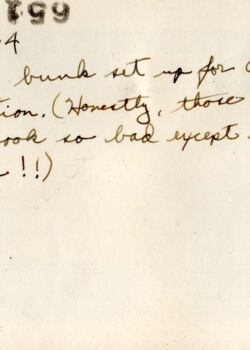 651
4
bunk set up for
tion. (Honestly, those
ook so bad except
!!)